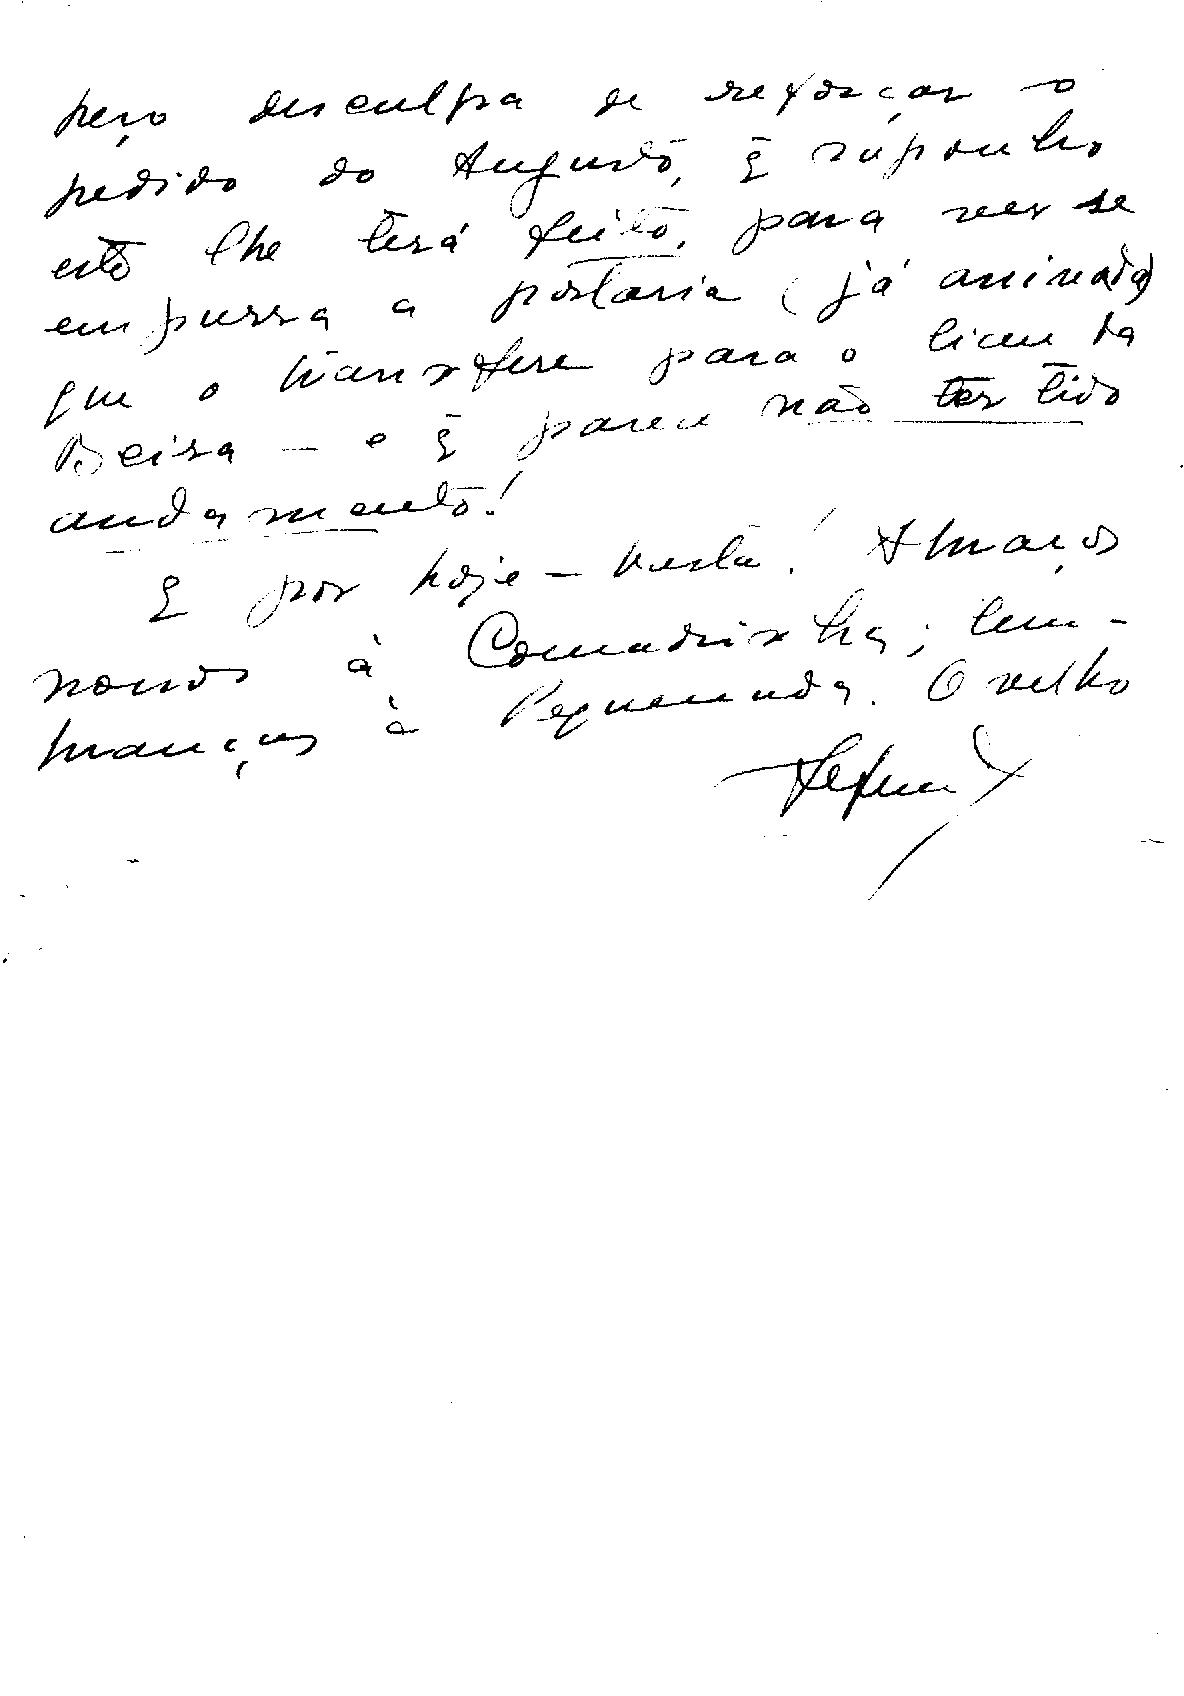 peço desculpa de reforçar o
pedido do Augusto, q̄ suponho
este lhe terá feito, para ver se
empurra a portaria (já assinada)
que o transfere para o liceu da
Beira — e q̄ parece não ter tido
andamento!
E por hoje — basta! Abraços
nossos à Comadrinha; lem-
branças à Pequenada. O velho